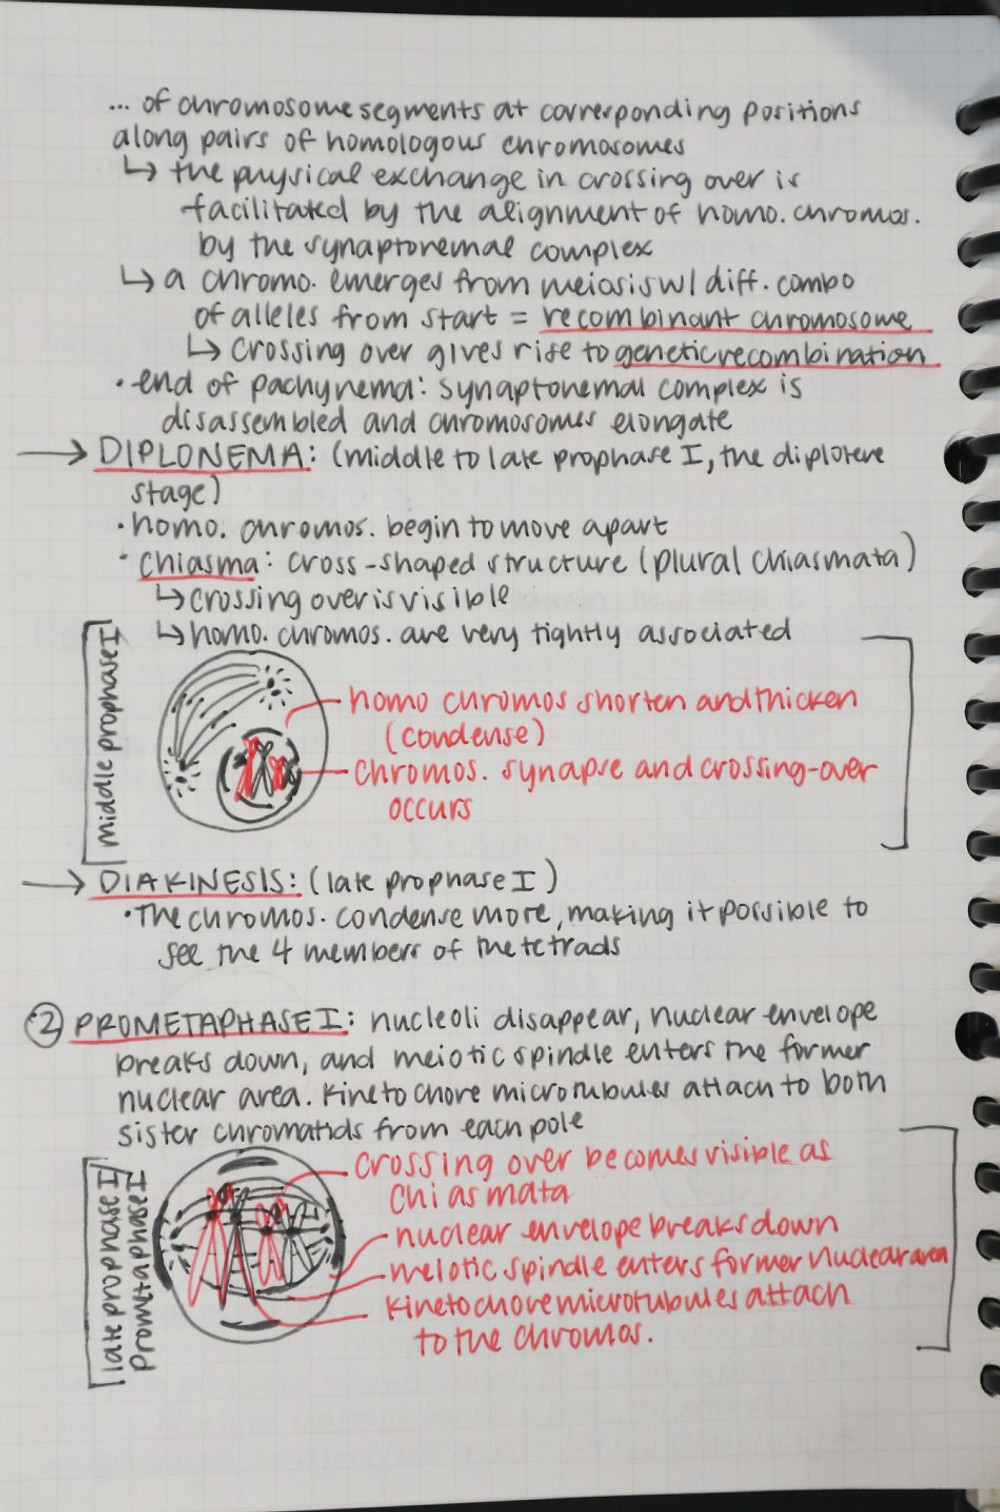 ... of chromosome segments at corresponding positions
along pairs of homologous chromosomes
↳ the physical exchange in crossing over is
facilitated by the alignment of homo. chromos.
by the synaptonemal complex
↳ a chromo. emerges from meiosis w/ diff. combo
of alleles from start = recombinant chromosome
↳ crossing over gives rise to genetic recombination
• end of pachynema: synaptonemal complex is
disassembled and chromosomes elongate
→ DIPLONEMA: (middle to late prophase I, the diplotene
stage)
• homo. chromos. begin to move apart
• chiasma: cross-shaped structure (plural chiasmata)
↳ crossing over is visible
↳ homo. chromos. are very tightly associated
middle prophase I
homo chromos shorten and thicken
(condense)
chromos. synapse and crossing-over
occurs
→ DIAKINESIS: (late prophase I)
• The chromos. condense more, making it possible to
see the 4 members of the tetrads
② PROMETAPHASE I: nucleoli disappear, nuclear envelope
breaks down, and meiotic spindle enters the former
nuclear area. Kinetochore microtubules attach to both
sister chromatids from each pole
late prophase I/
Prometaphase I
crossing over becomes visible as
chiasmata
nuclear envelope breaks down
meiotic spindle enters former nuclear area
kinetochore microtubules attach
to the chromos.